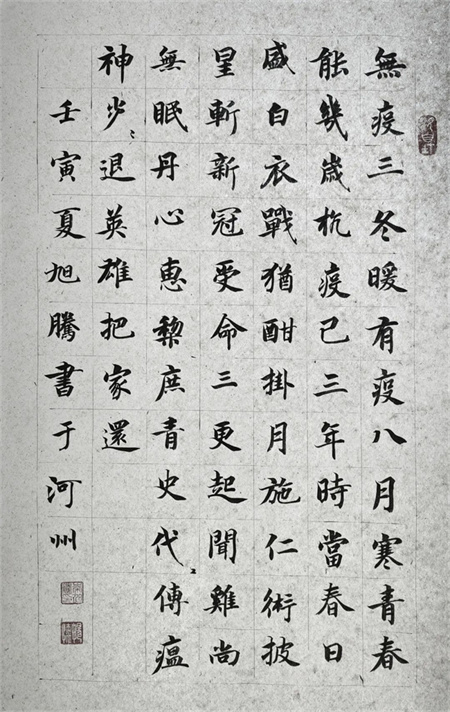 無疫三冬暖有疫八月寒青春
能幾歲抗疫已三年時當春日
盛白衣戰猶酣掛月施仁術披
星斬新冠受命三更起聞雞尚
無眠丹心惠黎庶青史代〻傳瘟
神步〻退英雄把家還
壬寅夏旭騰書于河州